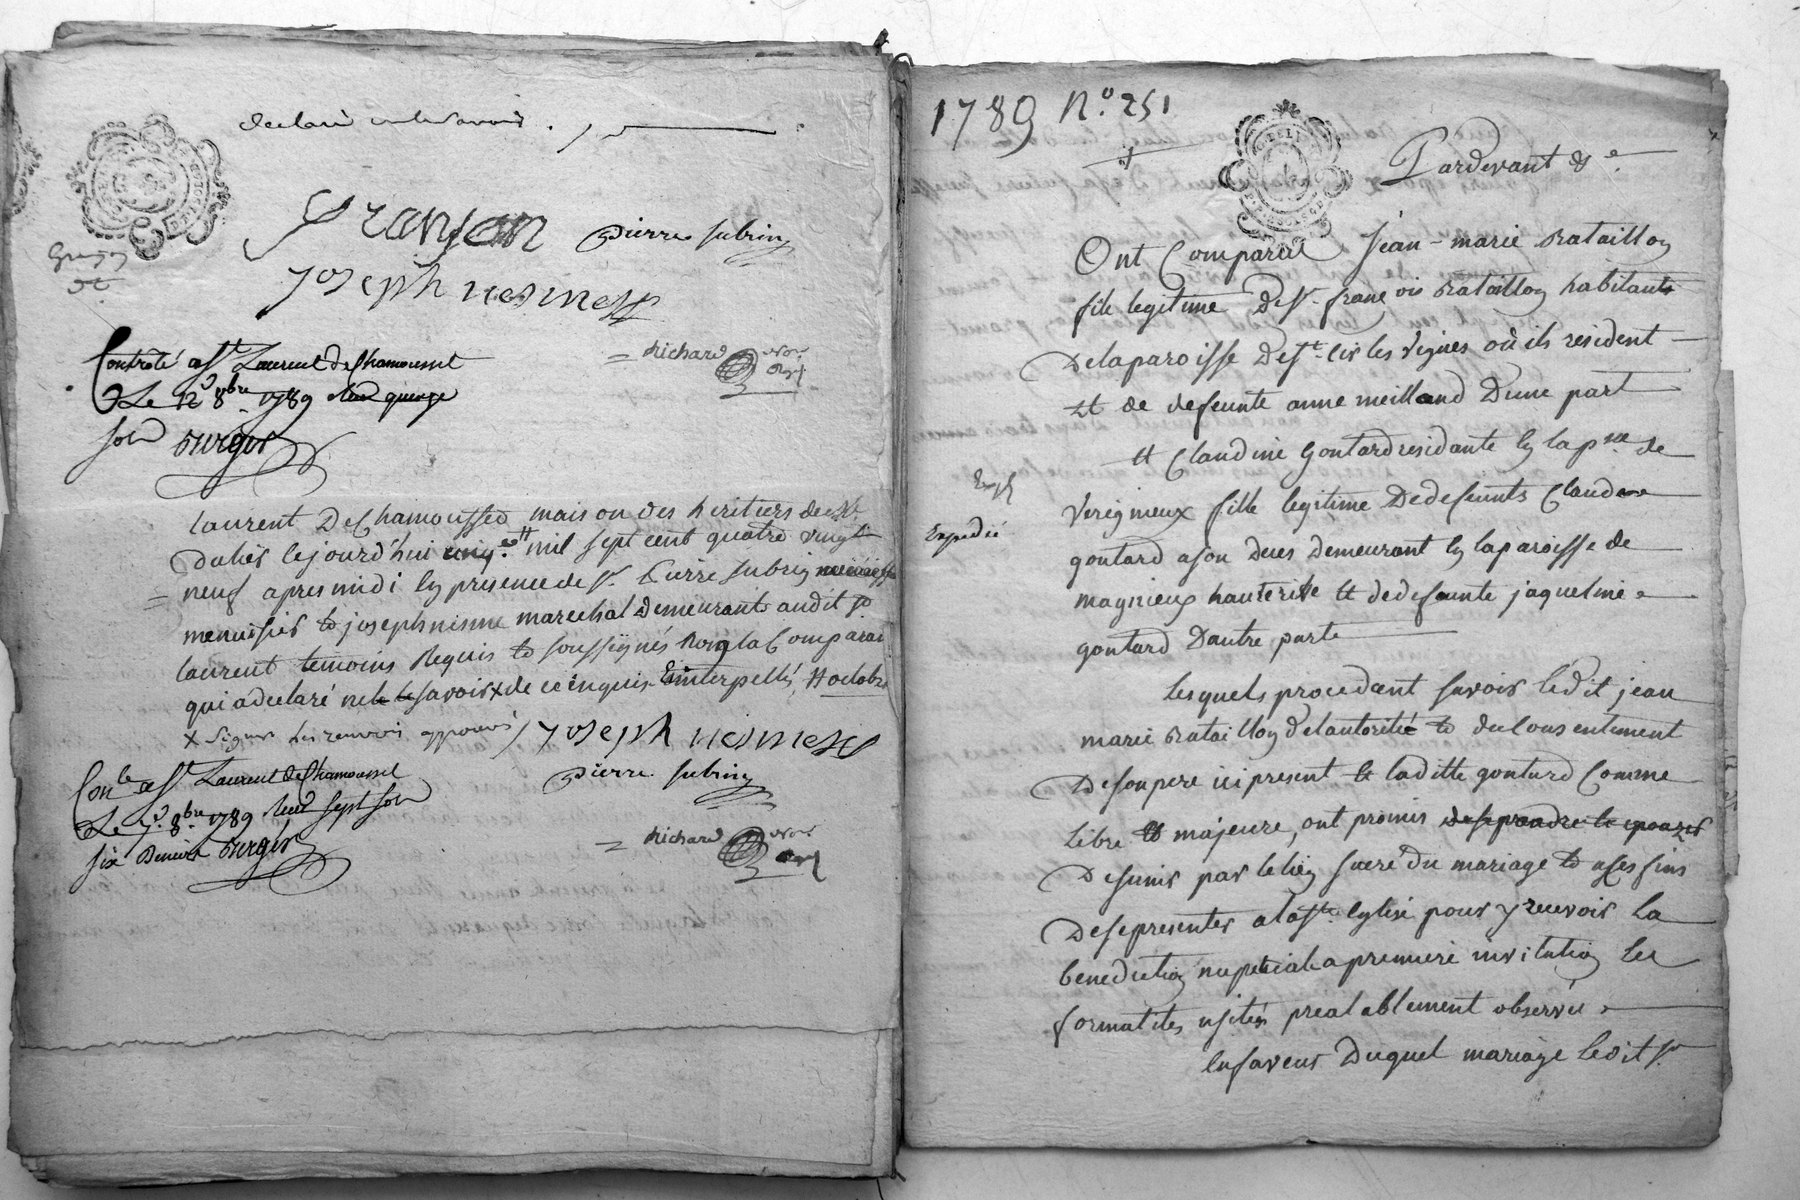 declaré ne le savoir.
Granjon pierre subrin
Joseph nesmes
Contrôlé à St Laurent de Chamousset
Richard
Le 12 8bre 1789 Reçu quinze
sols
laurent De Chamousset maison des heritiers de Sr
le jourd'hui cinq mil sept cent quatre vingt
neuf apres midi En presence de Sr Pierre Subrin
menuisier et joseph nesme marechal demeurants audit St
laurent temoins Requis et soussignés non la Comparan
qui a declaré ne le savoir x de ce enquis & interpellés, # octobre
x signer les renvois approuvés Joseph nesmes
Con.le à St Laurent de Chamousset
pierre subrin
Le 7 8bre 1789 Reçu sept sols
Richard
six deniers
1789 N.o 251
Pardevant
Ont Comparu Jean-marie Bataillon
fils legitime de Sr françois Bataillon habitants
De la paroisse de St Cir les Vignes où ils resident
et de defeunte anne meilland D'une part
et Claudine Gontard residante En la psse de
Expedié
Verigneux fille legitime De defeunts Claude
gontard a son deces demeurant En la paroisse de
magnieux hauterive et de defeunte jaqueline
gontard D'autre parte
Lesquels procedant savoir ledit jean
marie Bataillon de l'autorité et du Consentement
De son pere ici present et laditte gontard Comme
Libre et majeure, ont promis de se prendre et epouzer
De s'unir par le lien sacré du mariage et a ces fins
De se presenter a la Ste Eglise pour y recevoir La
benediction nuptiale a premiere invitation les
formalités usitées prealablement observées
En faveur Duquel mariage ledit Sr